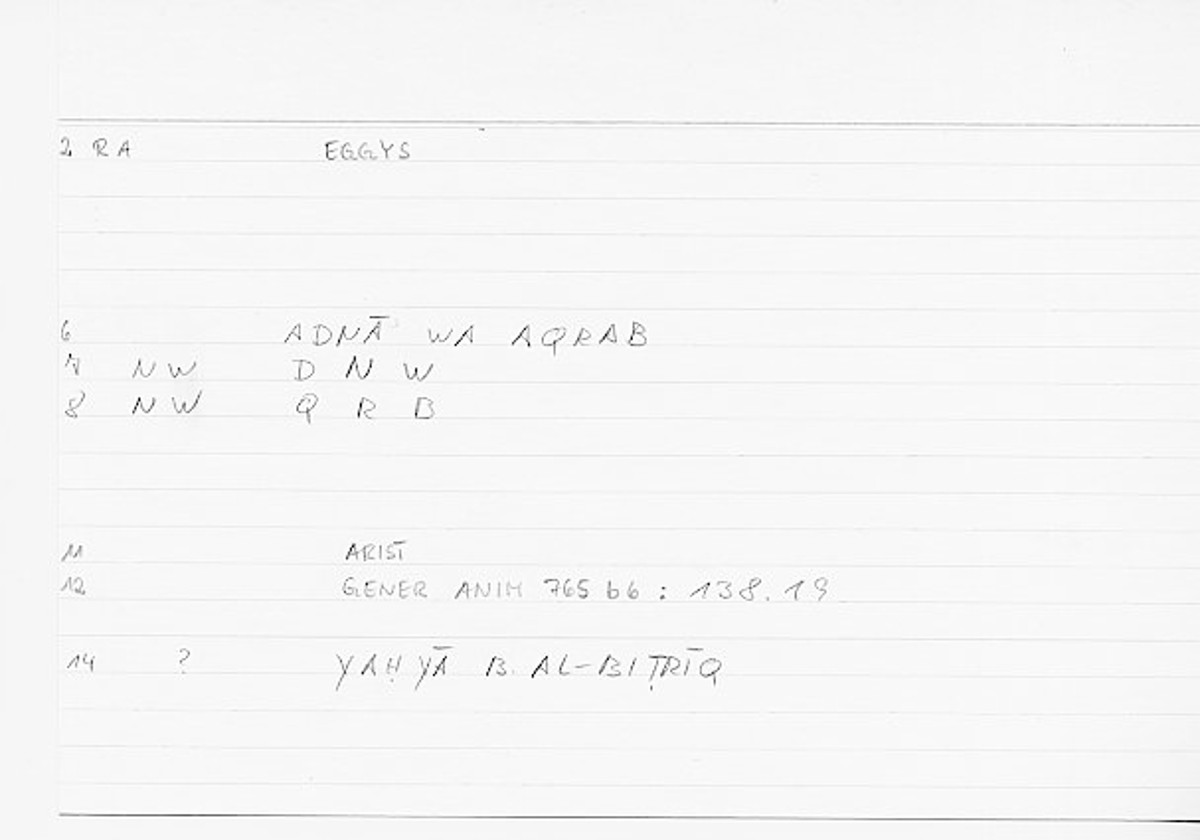 2 RA EGGYS
6 ADNĀ WA AQRAB
7 NW D N W
8 NW Q R B
11 ARIST
12 GENER ANIM 765 b6 : 138.19
14 ? YAḤYĀ B. AL-BIṬRĪQ